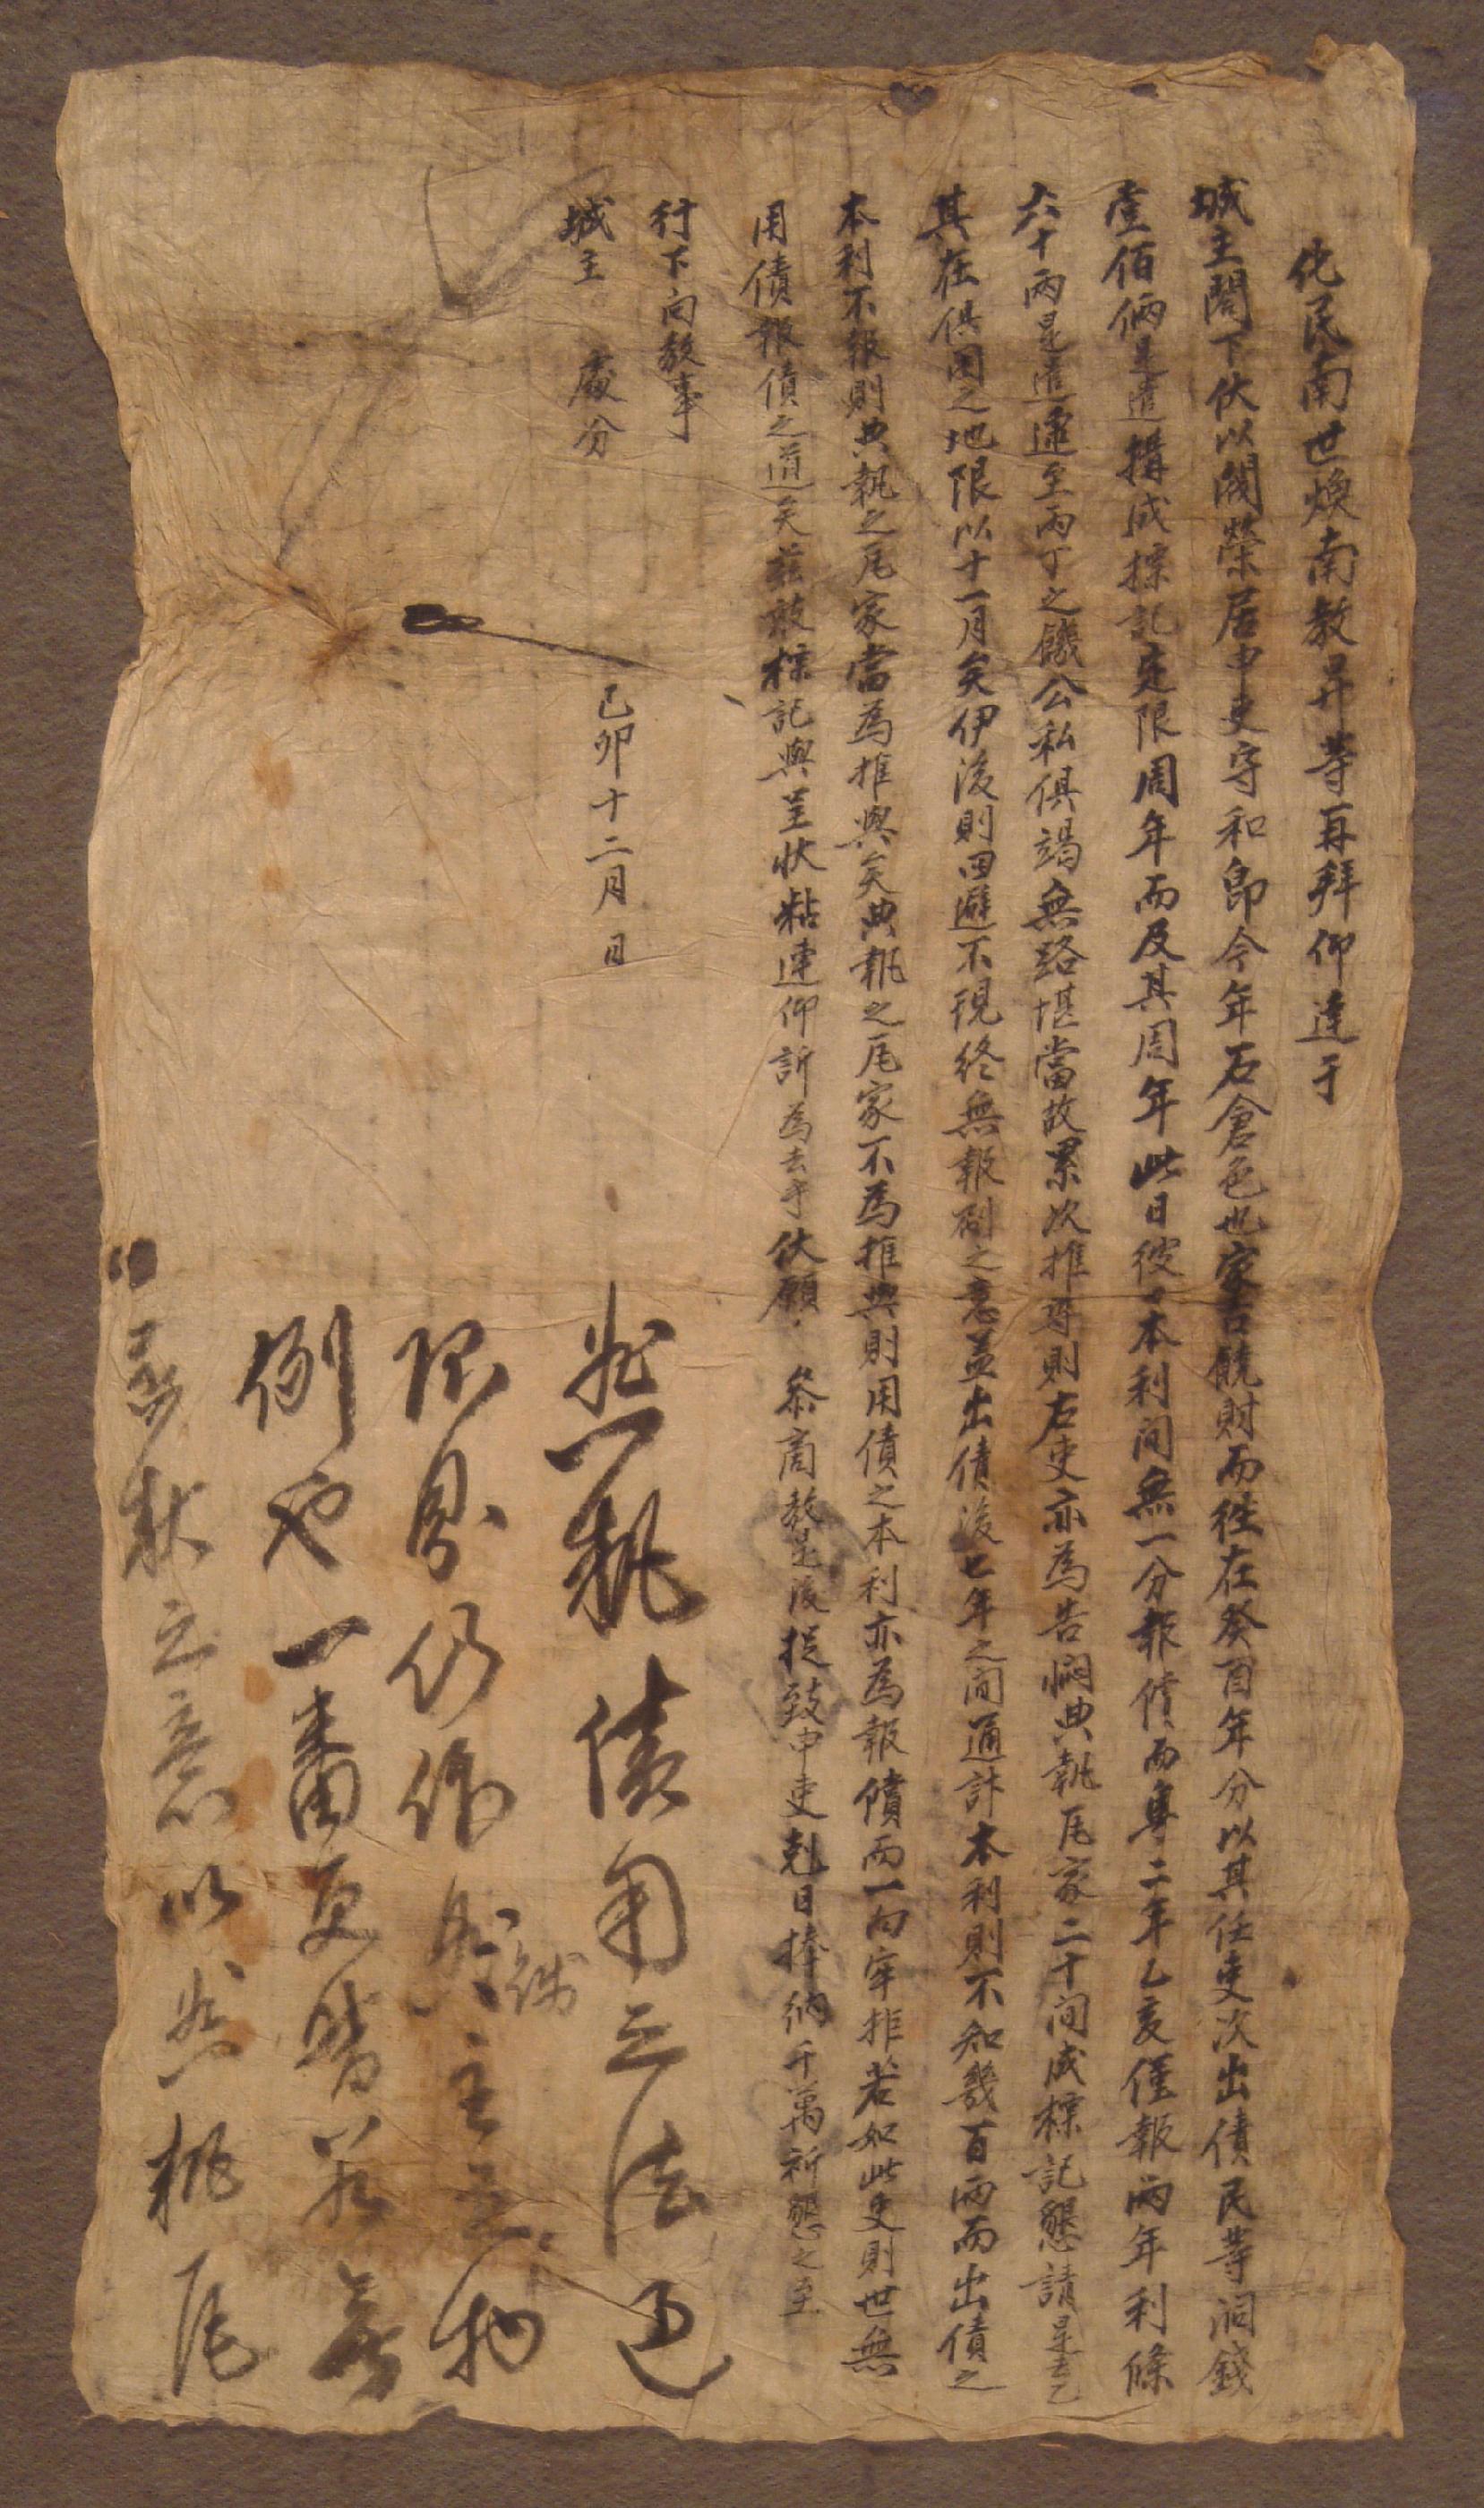 化民南世煥南教昇等再拜仰達于
城主閤下伏以閔榮居申吏守和卽今年石倉色也家舌饒財而徃在癸酉年分以其任吏次出債民等洞錢
壹佰兩是遣搆成標記定限周年而及其周年此日彼日本利間無一分報債而兩年乙亥僅報兩年利條
六十兩是遣逮至丙丁之饑公私俱竭無路堪當故累次推尋則右吏亦爲告悶典執瓦家二十間成標記懇請是去乙
其在俱困之地限以十一月矣伊後則回避不現終無報劑之意盖出債後七年之間通計本利則不知幾百兩而出債之
本利不報則典執之瓦家當爲推與矣典執之瓦家不爲推與則用債之本利亦爲報債而一向牢拒若如此吏則世無
用債報債之道矣玆敢標記與呈狀粘連仰訴爲去乎伏願 參商敎是後捉致申吏剋日捧納千萬祈懇之至
行下向敎事
城主 處分
己卯十二月 日
典執債用之法過
限則仍作財主之物
例也一番更督若無
報之意以此執瓦